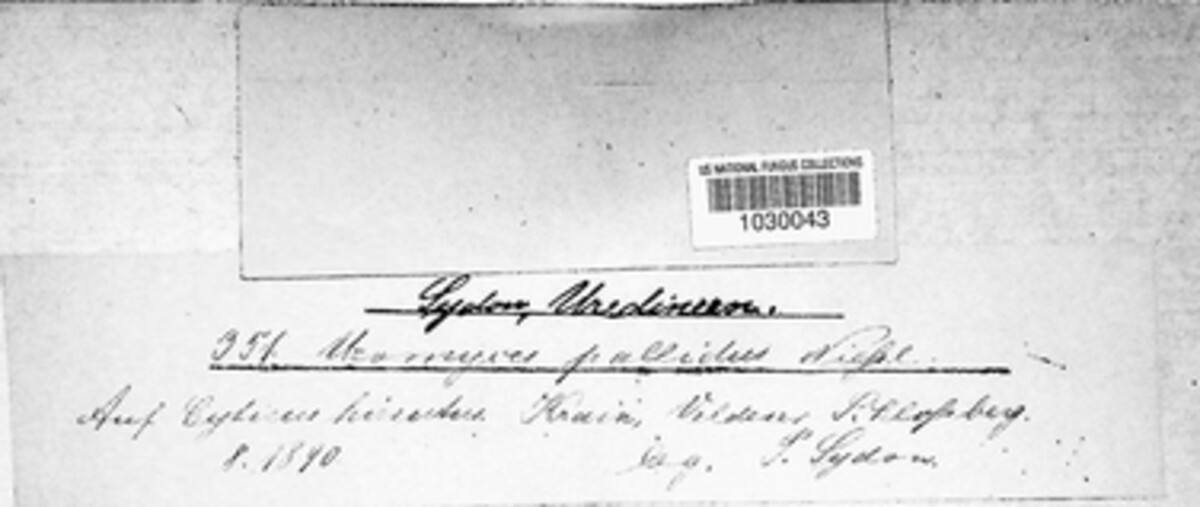 US NATIONAL FUNGUS COLLECTIONS
1030043
Sydow, Uredineen.
351. Uromyces pallidus Nießl.
Auf Cytisus hirsutus. Krain, Veldens, Schloßberg.
8. 1890. leg. P. Sydow.